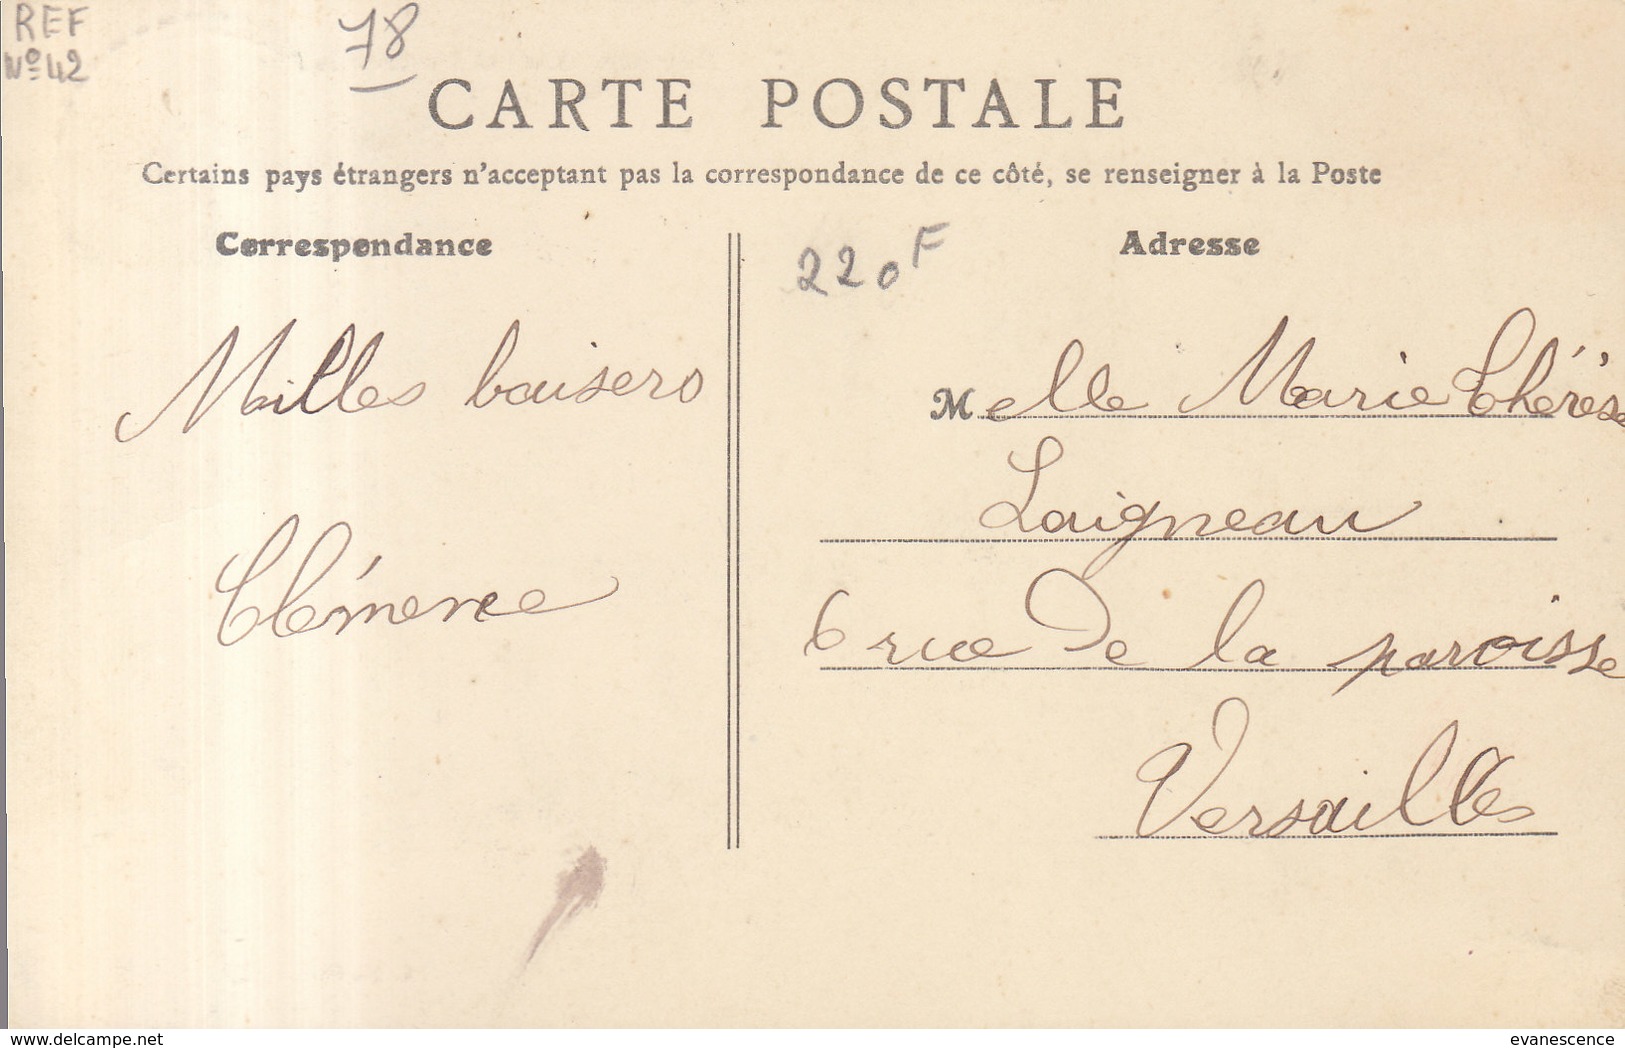 REF
N° 42
78
CARTE POSTALE
Certains pays étrangers n'acceptant pas la correspondance de ce côté, se renseigner à la Poste
Correspondance
Milles baisers
Clémence
220F
Adresse
Melle Marie Thérèse
Laigneau
6 rue De la paroisse
Versailles
www.delcampe.net
evanescence